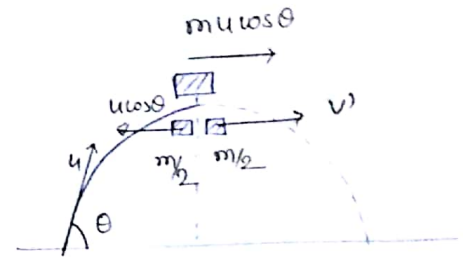 mucosθ
ucosθ
v)
u
m/2
m/2
θ